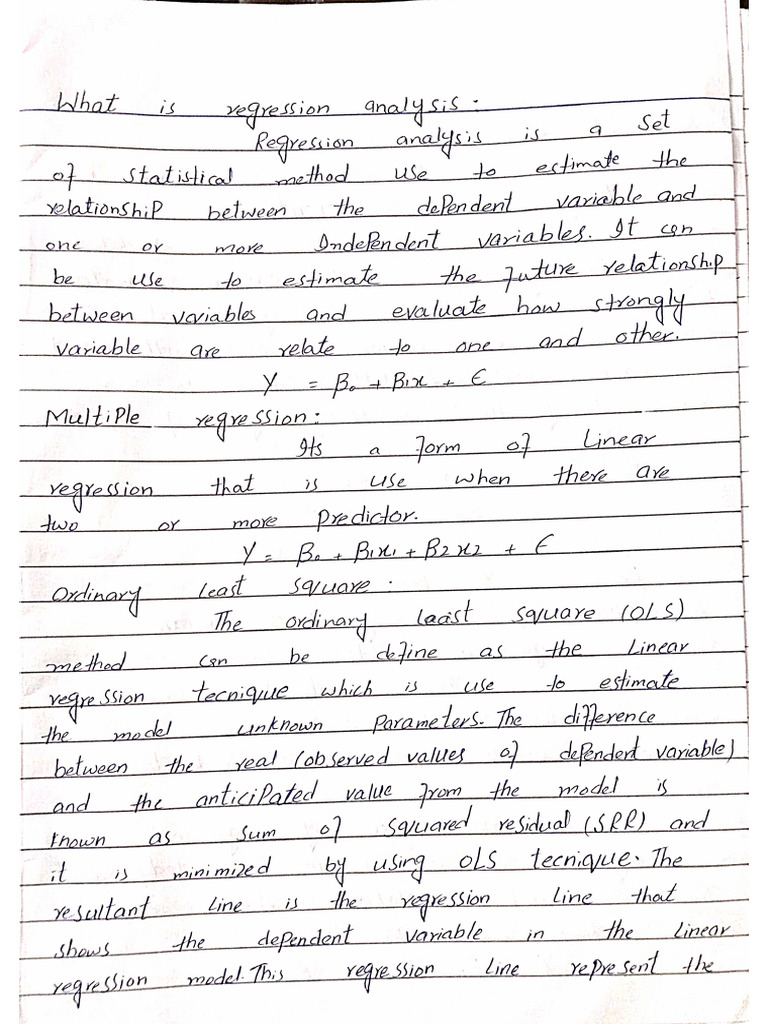 What is regression analysis:
Regression analysis is a set
of statistical method use to estimate the
relationship between the dependent variable and
one or more Independent variables. It can
be use to estimate the future relationship
between variables and evaluate how strongly
variable are relate to one and other.
Y = β₀ + β1x + ϵ
Multiple regression:
Its a form of Linear
regression that is use when there are
two or more predictor.
Y = β₀ + β1x1 + β2x2 + ϵ
Ordinary least square.
The ordinary laaist square (OLS)
method can be define as the linear
regression tecnique which is use to estimate
the model unknown parameters. The difference
between the real (observed values of dependent variable)
and the anticipated value from the model is
known as sum of squared residual (SRR) and
it is minimized by using OLS tecnique. The
resultant line is the regression line that
shows the dependent variable in the linear
regression model. This regression line represent the